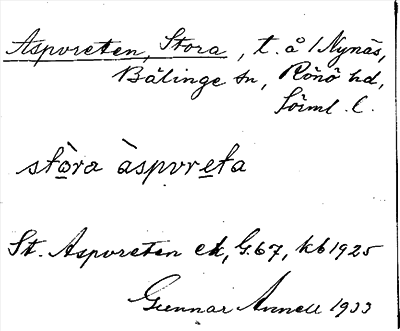 Aspvreten, Stora, t. å /Nynäs,
Bälinge sn, Rönö hd,
Sörml. C.
stòra àspvreta
St. Aspvreten ek, G.67, kb 1925
Gunnar Annell 1933